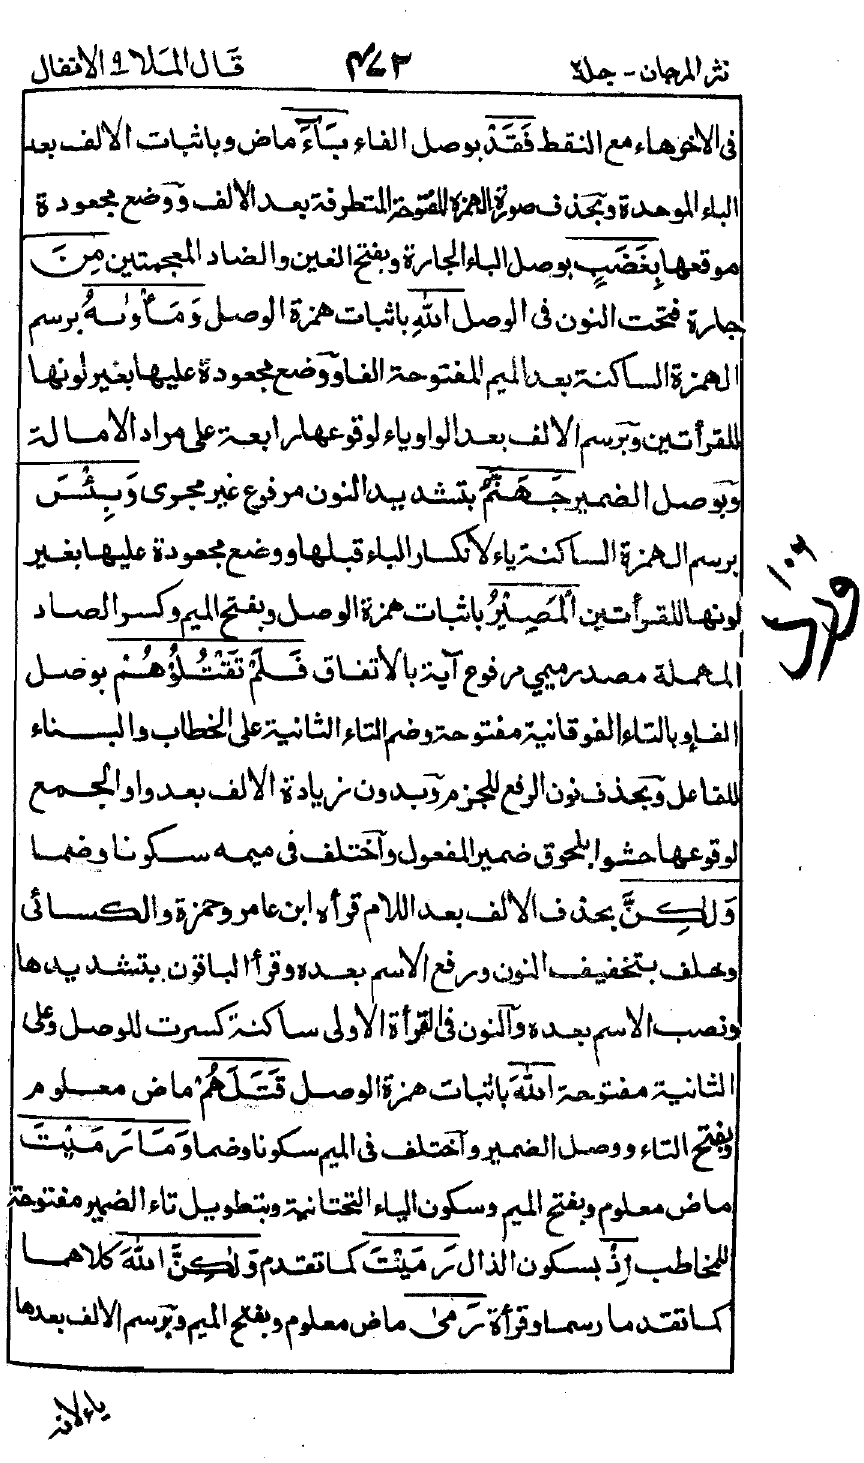 نثر المرجان - جلد ٢ ٤٧٢ قال الملا ٩ الانفال
فى الاخرهاء مع النقط فَقَدْ بوصل الفاء بَآءَ ماض وباثبات الالف بعد
الباء الموحدة وبحذف صورة الهمزة المفتوحة المتطرفة بعد الالف ووضع مجعودة
موقعها بِغَضَبٍ بوصل الباء الجارة وبفتح الغين والضاد المعجمتين مِنَ
جارة فتحت النون فى الوصل اللّٰهِ باثبات همزة الوصل وَمَأْوٰىهُ برسم
الهمزة الساكنة بعد الميم المفتوحة الفا ووضع مجعودة عليها بغير لونها
للقرأتين وبرسم الالف بعد الواو ياء لوقوعها رابعة على مراد الامالة
وبوصل الضمير جَهَنَّمُ بتشديد النون مرفوع غير مجرى وَبِئْسَ
برسم الهمزة الساكنة ياء لانكسار الباء قبلها ووضع مجعودة عليها بغير
لونها للقرأتين الْمَصِيْرُ باثبات همزة الوصل وبفتح الميم وكسر الصاد
المهملة مصدر ميمي مرفوع آية بالاتفاق فَلَمْ تَقْتُلُوْهُمْ بوصل
الفاء وبالتاء الفوقانية مفتوحة وضم التاء الثانية على الخطاب والبناء
للفاعل وبحذف نون الرفع للجزم وبدون زيادة الالف بعد واو الجمع
لوقوعها حشوا بلحوق ضمير المفعول واختلف فى ميمه سكونا وضما
وَلٰكِنَّ بحذف الالف بعد اللام قرأه ابن عامر وحمزة والكسائى
وخلف بتخفيف النون ورفع الاسم بعده وقرأ الباقون بتشديدها
ونصب الاسم بعده والنون فى القرأة الاولى ساكنة كسرت للوصل وعلى
الثانية مفتوحة اللّٰهَ باثبات همزة الوصل قَتَلَهُمْ ماض معلوم
وبفتح التاء ووصل الضمير واختلف فى الميم سكونا وضما وَمَا رَمَيْتَ
ماض معلوم وبفتح الميم وسكون الياء التحتانية وبتطويل تاء الضمير مفتوحة
للمخاطب إِذْ بسكون الذال رَمَيْتَ كما تقدم وَلٰكِنَّ اللّٰهَ كلاهما
كما تقدما رسما وقرأة رَمٰى ماض معلوم وبفتح الميم وبرسم الالف بعدها
ياء لانه